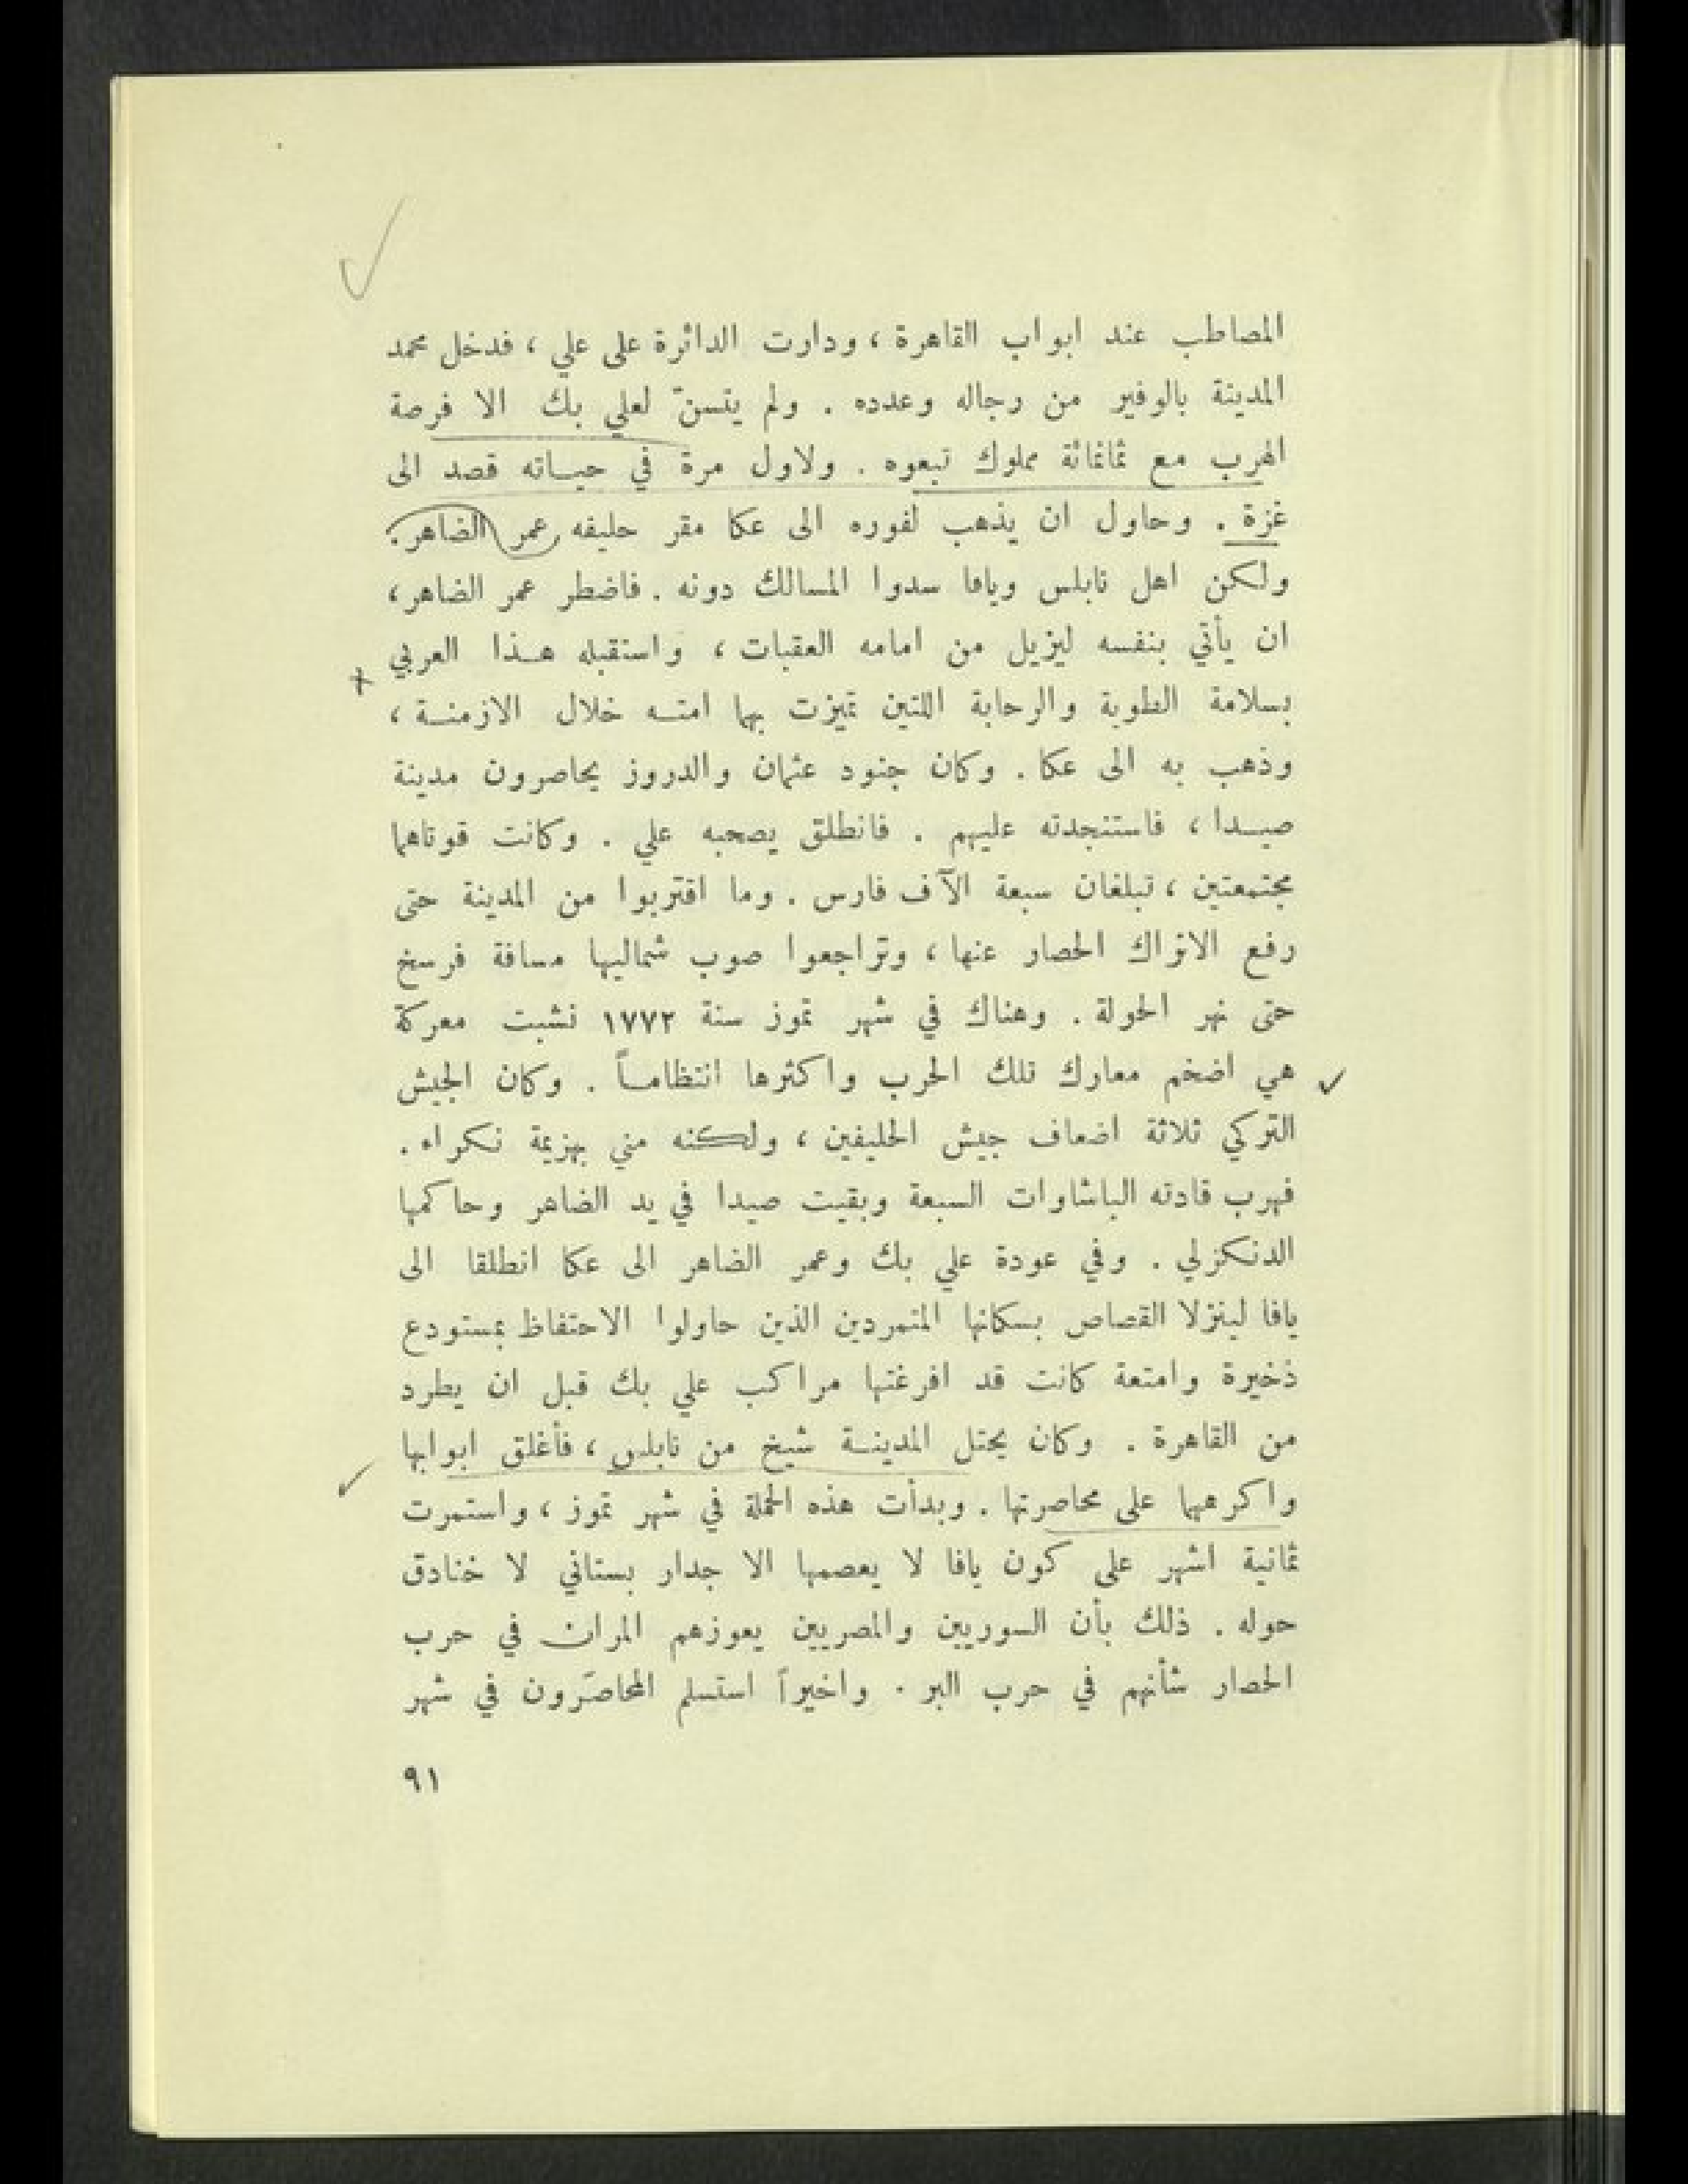 المصاطب عند ابواب القاهرة ، ودارت الدائرة على علي ، فدخل محمد
المدينة بالوفير من رجاله وعدده . ولم يتسنّ لعلي بك الا فرصة
الهرب مع ثمانمائة مملوك تبعوه . ولاول مرة في حيـاته قصد الى
غزة . وحاول ان يذهب لفوره الى عكا مقر حليفه عمر الضاهر .
ولكن اهل نابلس ويافا سدوا المسالك دونه . فاضطر عمر الضاهر ،
ان يأتي بنفسه ليزيل من امامه العقبات ، واستقبله هـذا العربي
بسلامة الطوية والرحابة اللتين تميزت بهما امتـه خلال الازمنـة ،
وذهب به الى عكا . وكان جنود عثمان والدروز يحاصرون مدينة
صيـدا ، فاستنجدته عليهم . فانطلق يصحبه علي . وكانت قوتاهما
مجتمعتين ، تبلغان سبعة الآف فارس . وما اقتربوا من المدينة حتى
رفع الاتراك الحصار عنها ، وتراجعوا صوب شماليها مسافة فرسخ
حتى نهر الحولة . وهناك في شهر تموز سنة ١٧٧٢ نشبت معركة
هي اضخم معارك تلك الحرب واكثرها انتظامـاً . وكان الجيش
التركي ثلاثة اضعاف جيش الحليفين ، ولكنه مني بهزيمة نكراء .
فهرب قادته الباشاوات السبعة وبقيت صيدا في يد الضاهر وحاكمها
الدنكزلي . وفي عودة علي بك وعمر الضاهر الى عكا انطلقا الى
يافا لينزلا القصاص بسكانها المتمردين الذين حاولوا الاحتفاظ بمستودع
ذخيرة وامتعة كانت قد افرغتها مراكب علي بك قبل ان يطرد
من القاهرة . وكان يحتل المدينـة شيخ من نابلس ، فأغلق ابوابها
واكرههما على محاصرتها . وبدأت هذه الحملة في شهر تموز ، واستمرت
ثمانية اشهر على كون يافا لا يعصمها الا جدار بستاني لا خنادق
حوله . ذلك بأن السوريين والمصريين يعوزهم المران في حرب
الحصار شأنهم في حرب البر . واخيراً استسلم المحاصَرون في شهر
٩١